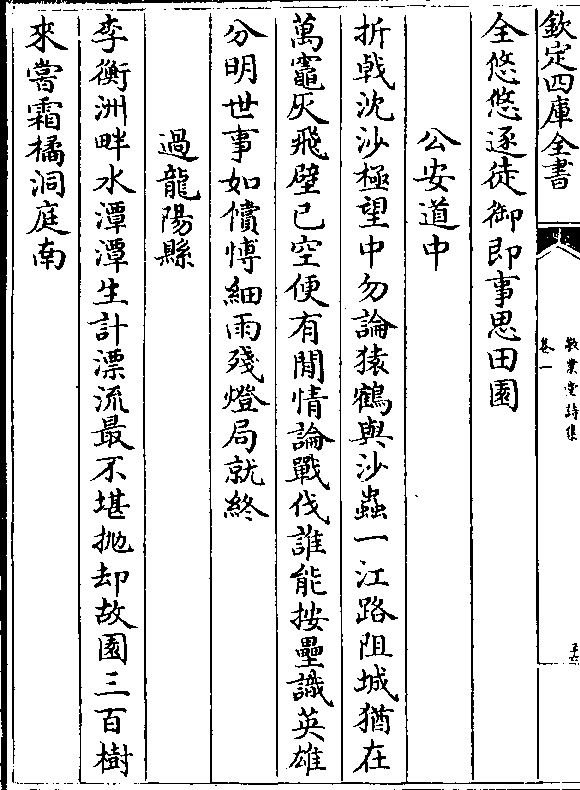 欽定四庫全書
敬業堂詩集
卷一
全悠悠逐徒御即事思田園
公安道中
折戟沈沙極望中勿論猿鶴與沙蟲一江路阻城猶在
萬竈灰飛壁已空便有閒情論戰伐誰能按壘識英雄
分明世事如償愽細雨殘燈局就終
過龍陽縣
李衡洲畔水潭潭生計漂流最不堪拋却故園三百樹
來嘗霜橘洞庭南